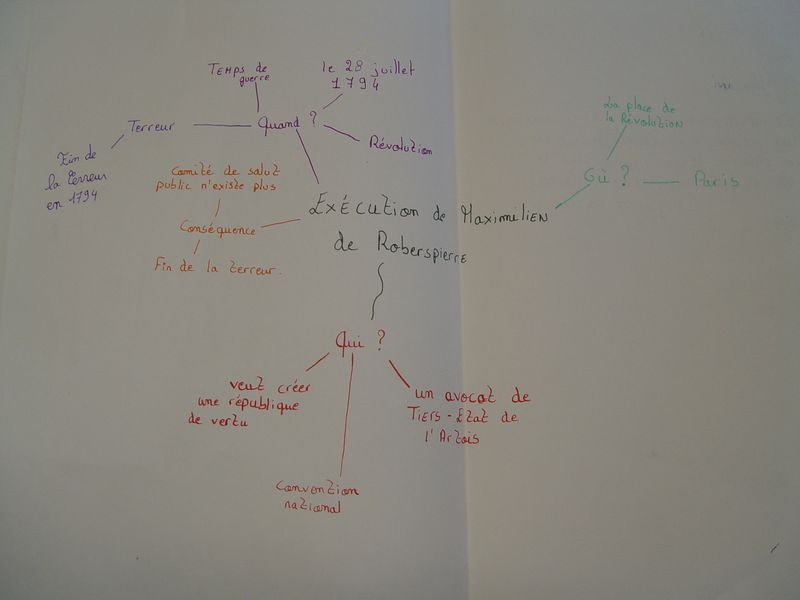 Temps de
guerre
le 28 juillet
1794
Terreur
Quand ?
Révolution
Fin de
la terreur
en 1794
Comité de salut
public n'existe plus
Conséquence
Fin de la terreur.
Exécution de Maximilien
de Roberspierre
La place de
la Révolution
Où ?
Paris
Qui ?
veut créer
une république
de vertu
un avocat de
Tiers-Etat de
l'Artois
Convention
national